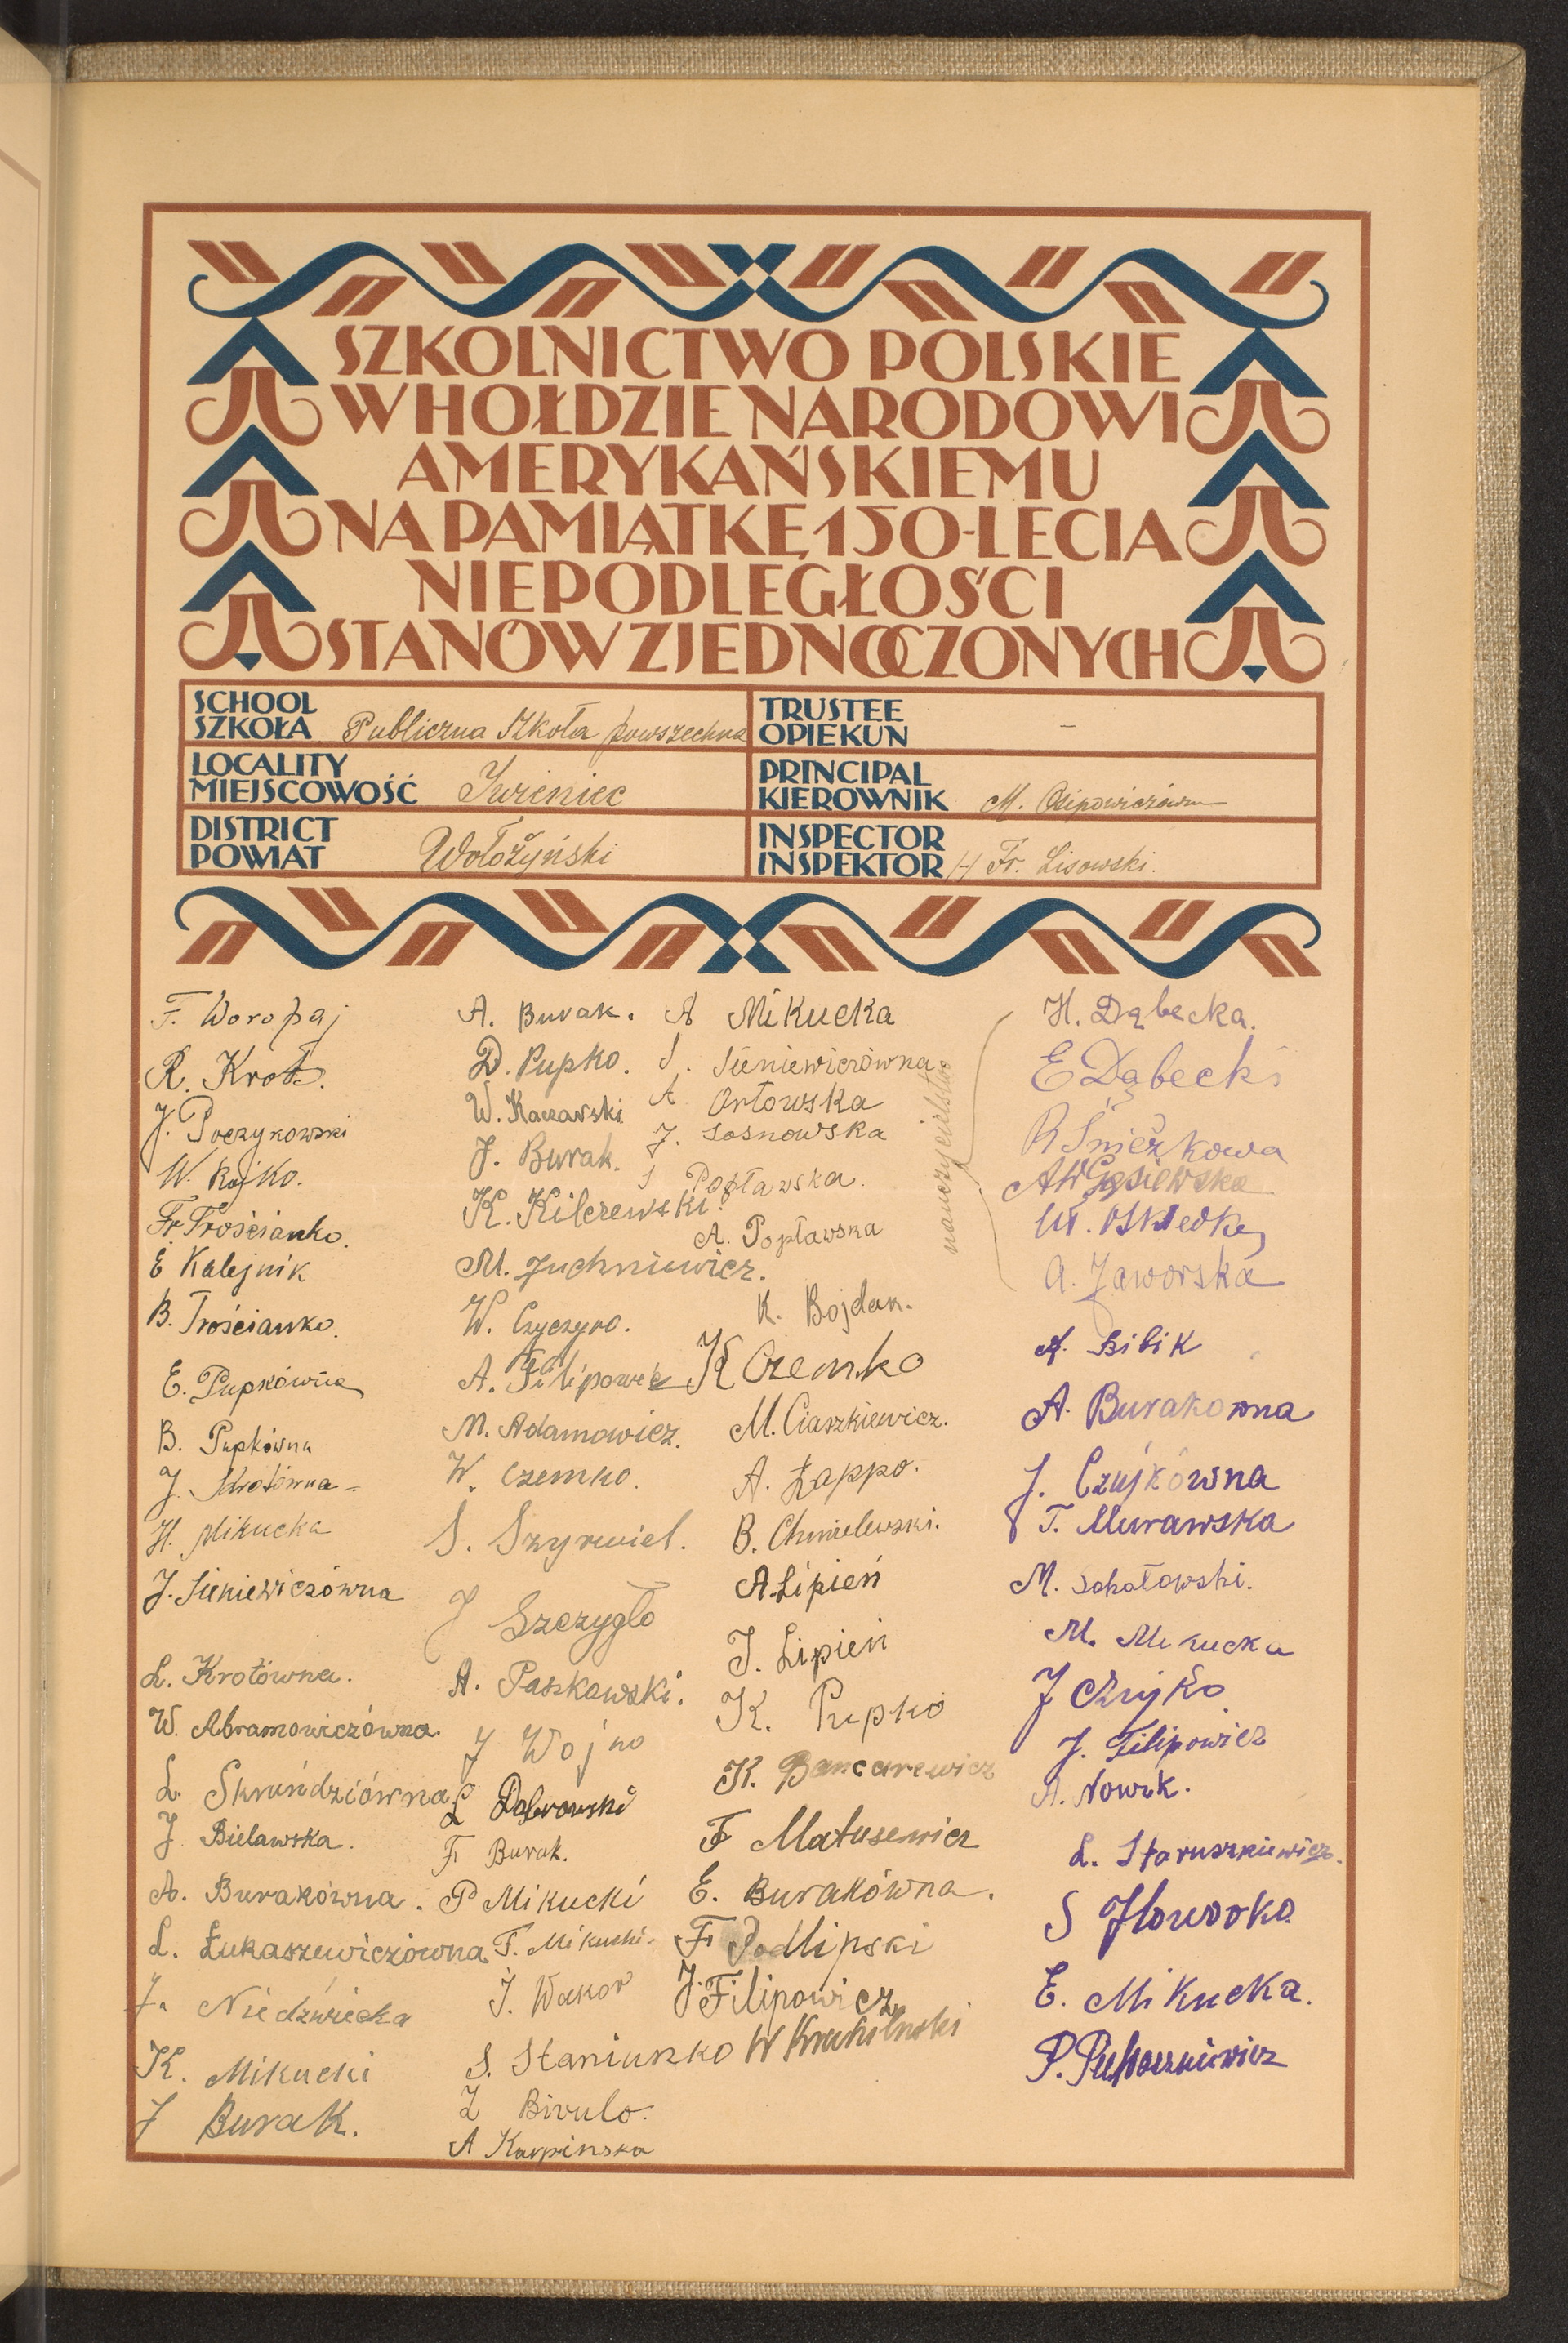 SZKOLNICTWO POLSKIE
W HOŁDZIE NARODOWI
AMERYKAŃSKIEMU
NA PAMIĄTKĘ 150-LECIA
NIEPODLEGŁOŚCI
STANÓW ZJEDNOCZONYCH
SCHOOL
SZKOŁA Publiczna Szkoła powszechna
TRUSTEE
OPIEKUN –
LOCALITY
MIEJSCOWOŚĆ Iwieniec
PRINCIPAL
KIEROWNIK M. Osipowiczówna
DISTRICT
POWIAT Wołożyński
INSPECTOR
INSPEKTOR (-) Fr. Lisowski.
F. Woropaj
R. Krot.
J. Poczykowski
W. Rojko.
Fr. Trościanko.
E Kalejnik
B. Trościanko.
E. Pupkówna
B. Pupkówna
J. Krotówna
H. Mikucka
J. Sieniewiczówna
L. Krotówna.
W. Abramowiczówna.
L. Skruńdziówna
J Bielawska.
A. Burakówna.
L. Łukaszewiczówna
J. Niedźwiecka
K. Mikucki
J Burak.
A. Burak.
D. Pupko.
W. Kaczawski
J. Burak.
K. Kilczewski.
M. Juchniewicz.
W. Czyczyro.
A. Filipowicz
M. Adamowicz.
W. Czemko.
S. Szyrwiel.
J Szczygło
A. Paszkawski.
J Wojno
L Dąbrowski
F Burak.
P Mikucki
F. Mikucki.
J. Wakor
S. Staniunko
Z Birulo.
A Karpinska
A Mikucka
S. Sieniewiczówna
A Orłowska
J. Sosnowska
S Popławska.
A. Popławska
K. Bojdan.
K Czemko
M. Ciaszkiewicz.
A. Łappo.
B. Chmielewski.
A. Lipień
J. Lipień
K. Pupko
K. Bancarewicz
F Matusewicz
E. Burakówna.
F Podlipski
J. Filipowicz
W
nauczycielstwo
H. Dąbecka.
E Dąbecki
R Śnieżkowa
A W Gąsiewska
A. Jaworska
A. Bibik
A. Burakowna
J. Czujkówna
T. Murawska
M. Sokołowski.
M. Mikucka
J Czujko
J. Filipowicz
A. Nowik.
L. Staruszkiewicz.
S Howorko
E. Mikucka.
P.